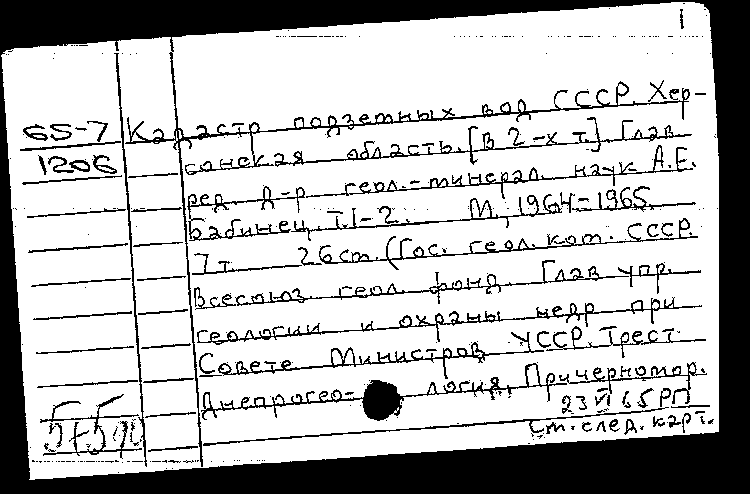 1
65-7 Кадастр подземных вод СССР. Хер-
1206 сонская область. [В 2-х т.]. Глав.
ред. д-р геол.-минерал. наук А.Е.
Бабинец. Т.1-2. М., 1964-1965.
7 т. 26 см. (Гос. геол. ком. СССР.
Всесоюз. геол. фонд. Глав. упр.
геологии и охраны недр при
Совете Министров УССР. Трест
Днепрогео- логия, Причерномор.
23 VI 65 РП
См. след. карт.